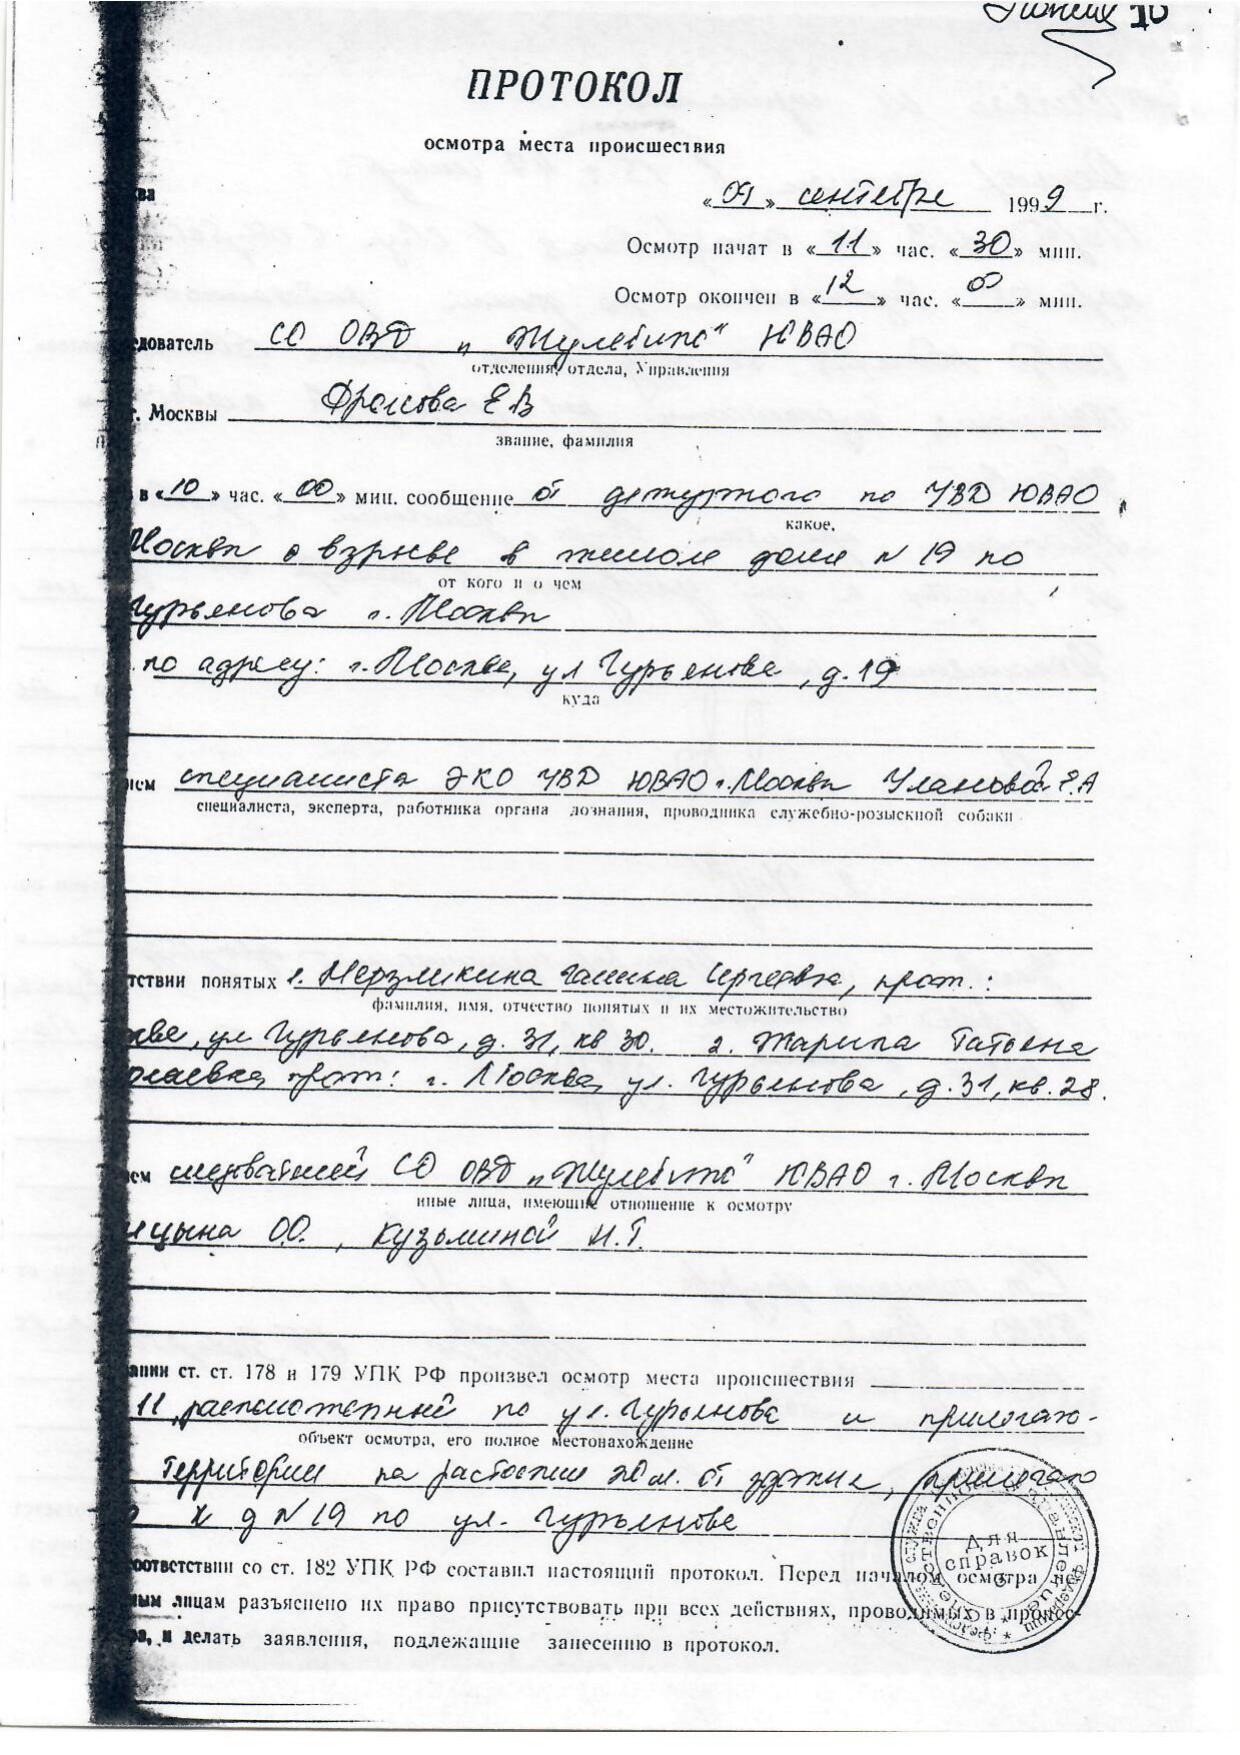 10
ПРОТОКОЛ
осмотра места происшествия
ва
«09» сентября 1999 г.
Осмотр начат в «11» час. «30» мин.
Осмотр окончен в «12» час. «0» мин.
едователь СО ОВД "Жулебино" ЮВАО
отделения, отдела, Управления
г. Москвы Фролова Е В
звание, фамилия
в «10» час. «00» мин. сообщение от дежурного по УВД ЮВАО
какое,
Москвы о взрыве в жилом доме № 19 по
от кого и о чем
Гурьянова г. Москвы
по адресу: г. Москва, ул Гурьянова, д. 19
куда
ием специалиста ЭКО УВД ЮВАО г. Москвы Улановой Е.А
специалиста, эксперта, работника органа дознания, проводника служебно-розыскной собаки
тствии понятых 1. Мерзликина Галина Сергеевна, прож.:
фамилия, имя, отчество понятых и их местожительство
ква, ул Гурьянова, д. 31, кв 30. 2. Жарина Татьяна
олаевна, прож: г. Москва, ул. Гурьянова, д. 31, кв. 28.
ем следователей СО ОВД "Жулебино" ЮВАО г. Москвы
иные лица, имеющие отношение к осмотру
ицына О.О., Кузьминой Н.Г.
ании ст. ст. 178 и 179 УПК РФ произвел осмотр места происшествия
11, расположенный по ул. Гурьянова и прилегаю-
объект осмотра, его полное местонахождение
территории на растоянии 20 м. от здания, прилегаю
к д № 19 по ул. Гурьянова
оответствии со ст. 182 УПК РФ составил настоящий протокол. Перед началом осмотра пе-
ным лицам разъяснено их право присутствовать при всех действиях, проводимых в процес-
ра, и делать заявления, подлежащие занесению в протокол.
Для
справок
3